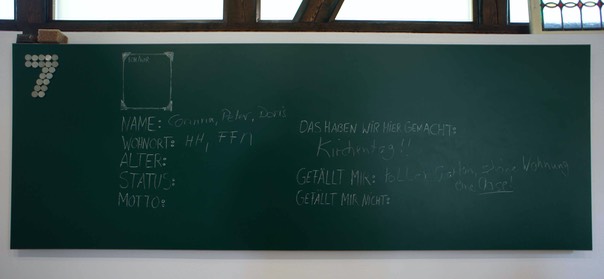 7
NAME: Corinna, Peter, Doris
WOHNORT: HH, FFM
ALTER:
STATUS:
MOTTO:
DAS HABEN WIR HIER GEMACHT:
Kirchentag!!
GEFÄLLT MIR: toller Garten, schöne Wohnung
GEFÄLLT MIR NICHT: